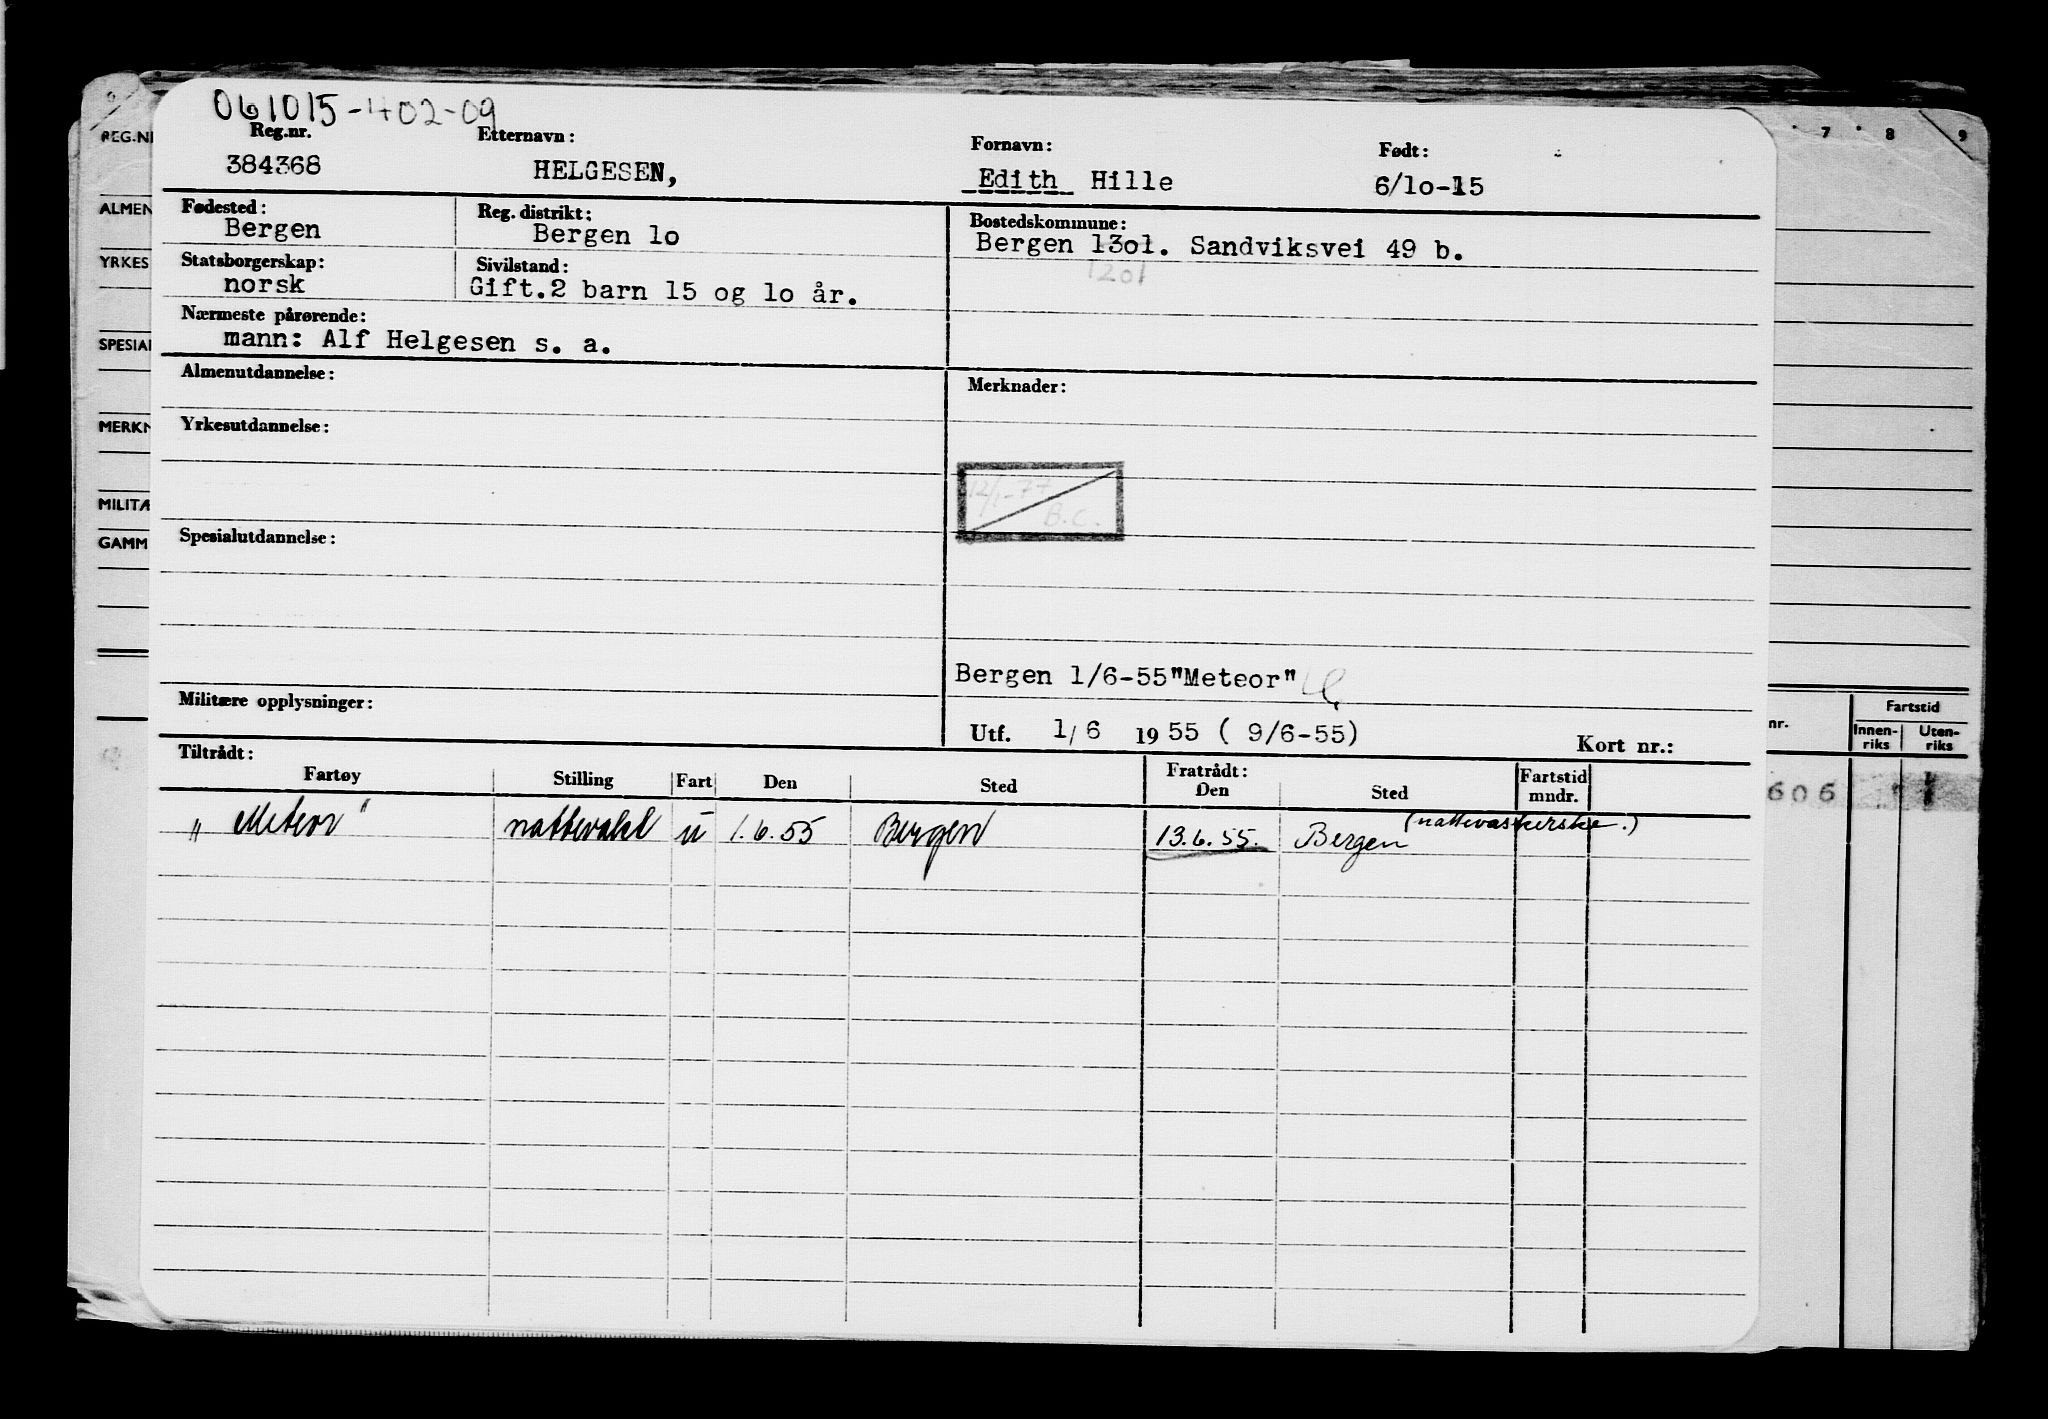 061015-402-09
Reg.nr. Etternavn: Fornavn: Født:
384368 HELGESEN, Edith Hille 6/10-15
Fødested: Reg. distrikt: Bostedskommune:
Bergen Bergen 10 Bergen 1301. Sandviksvei 49 b.
1201
Statsborgerskap: Sivilstand:
norsk Gift.2 barn 15 og 10 år.
Nærmeste pårørende:
mann: Alf Helgesen s. a.
Almenutdannelse: Merknader:
Yrkesutdannelse:
12/1-77
B.C.
Spesialutdannelse:
Bergen 1/6-55"Meteor"
Militære opplysninger:
Utf. 1/6 1955 ( 9/6-55)
Kort nr.:
Tiltrådt: Fratrådt:
Fartøy Stilling Fart Den Sted Den Sted Fartstid mndr.
"Meteor" nattevakt u 1.6.55 Bergen 13.6.55. Bergen (nattevaskerske.)
REG.NR
ALMEN
YRKES
SPESIAL
MERKN
MILITÆ
GAMM
7 8 9
nr. Fartstid
Innen-riks Uten-riks
606 1